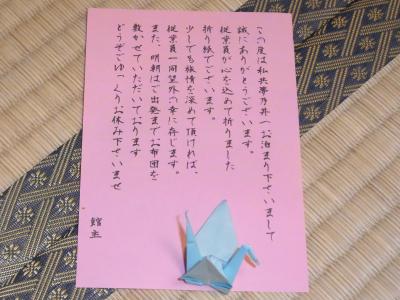 この度は私共夢乃井へお泊まり下さいまして
誠にありがとうございます。
従業員が心を込めて折りました
折り紙でございます。
少しでも旅情を深めて頂ければ、
従業員一同望外の幸に存じます。
また、明朝はご出発までお布団を
敷かせていただいております
どうぞごゆっくりお休み下さいませ
館主